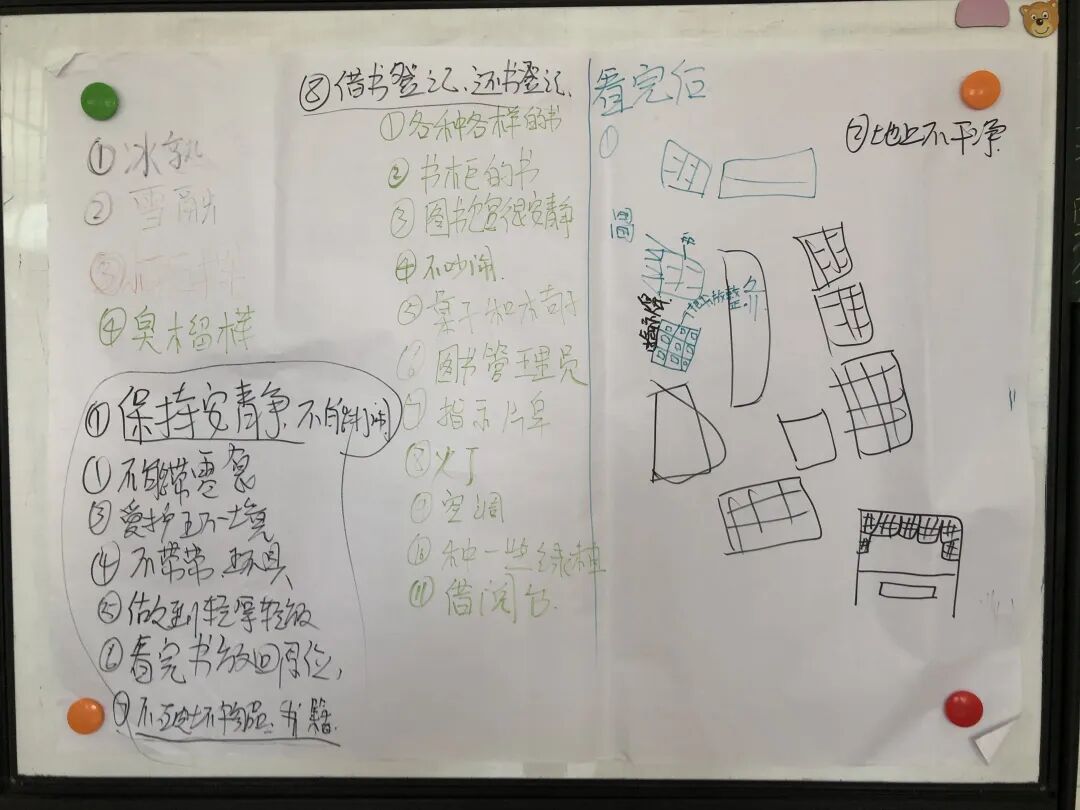 ①冰
②雪融
④臭榴梿
①保持安静 不能打闹
①不能带零食
③爱护环境
④不带玩具
⑤做到轻拿轻放
⑥看完书放回原位,
⑦不书籍.
⑧借书登记、还书登记、
①各种各样的书
②书柜的书
③图书馆很安静
④不吵闹.
⑤桌子和椅子
⑥图书管理员
⑦指示牌
⑧火丁
⑨空调
⑩种一些绿植
⑪借阅台.
看完后
①
②地上不干净